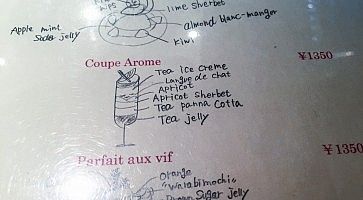 lime sherbet
Apple mint
Soda jelly
almond blanc-manger
Kiwi
Coupe Arome ¥1350
Tea ice creme
Langue de chat
Apricot
Apricot sherbet
Tea panna Cotta
Tea jelly
Parfait aux vif ¥1350
Orange
"Warabimochi"
Brown Sugar jelly